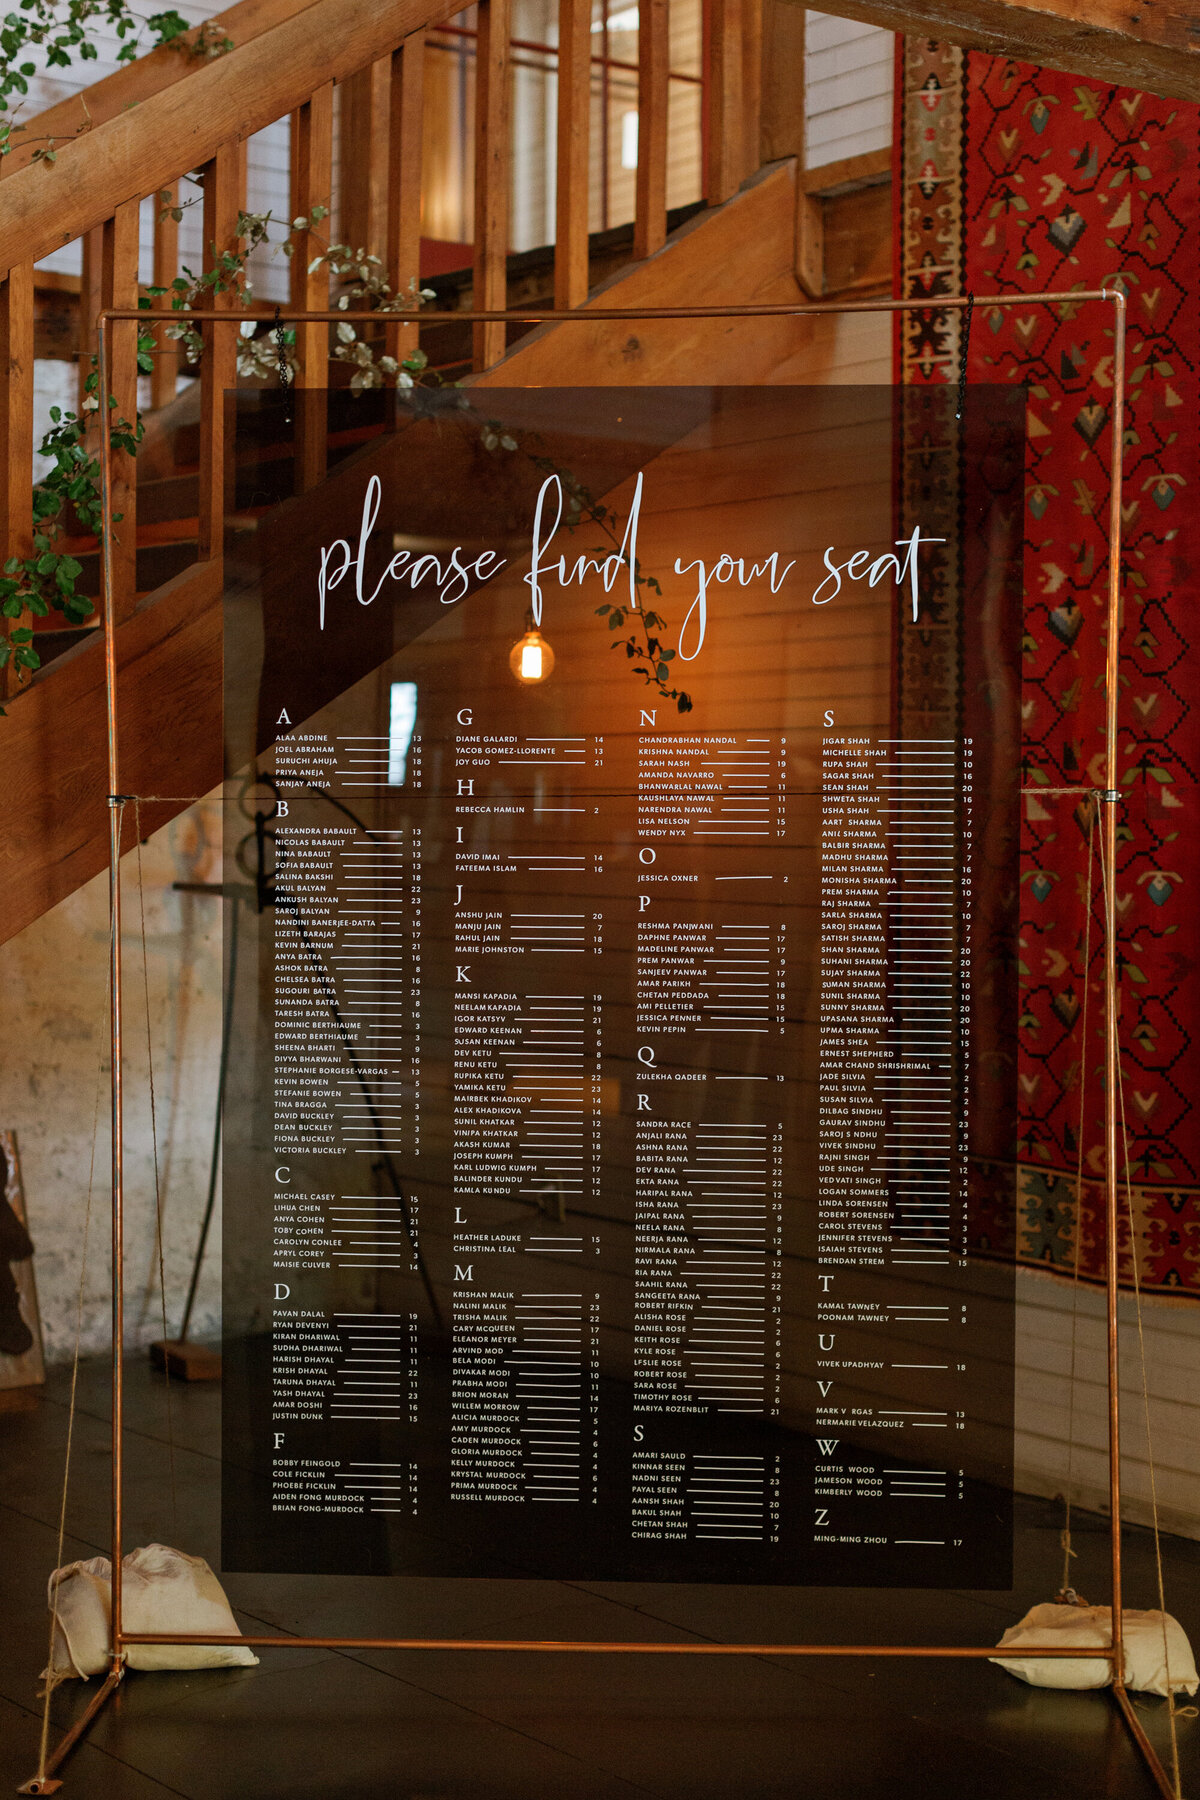 please find your seat
A
ALAA ABDINE 13
JOEL ABRAHAM 16
SURUCHI AHUJA 18
PRIYA ANEJA 18
SANJAY ANEJA 18
B
ALEXANDRA BABAULT 13
NICOLAS BABAULT 13
NINA BABAULT 13
SOFIA BABAULT 13
SALINA BAKSHI 18
AKUL BALYAN 22
ANKUSH BALYAN 23
SAROJ BALYAN 9
NANDINI BANERJEE-DATTA 16
LIZETH BARAJAS 17
KEVIN BARNUM 21
ANYA BATRA 16
ASHOK BATRA 8
CHELSEA BATRA 16
SUGOURI BATRA 23
SUNANDA BATRA 8
TARESH BATRA 16
DOMINIC BERTHIAUME 3
EDWARD BERTHIAUME 3
SHEENA BHARTI 9
DIVYA BHARWANI 16
STEPHANIE BORGESE-VARGAS 13
KEVIN BOWEN 5
STEFANIE BOWEN 5
TINA BRAGGA 3
DAVID BUCKLEY 3
DEAN BUCKLEY 3
FIONA BUCKLEY 3
VICTORIA BUCKLEY 3
C
MICHAEL CASEY 15
LIHUA CHEN 17
ANYA COHEN 21
TOBY COHEN 21
CAROLYN CONLEE 4
APRYL COREY 3
MAISIE CULVER 14
D
PAVAN DALAL 19
RYAN DEVENYI 21
KIRAN DHARIWAL 11
SUDHA DHARIWAL 11
HARISH DHAYAL 11
KRISH DHAYAL 22
TARUNA DHAYAL 11
YASH DHAYAL 23
AMAR DOSHI 16
JUSTIN DUNK 15
F
BOBBY FEINGOLD 14
COLE FICKLIN 14
PHOEBE FICKLIN 14
AIDEN FONG MURDOCK 4
BRIAN FONG-MURDOCK 4
G
DIANE GALARDI 14
YACOB GOMEZ-LLORENTE 13
JOY GUO 21
H
REBECCA HAMLIN 2
I
DAVID IMAI 14
FATEEMA ISLAM 16
J
ANSHU JAIN 20
MANJU JAIN 7
RAHUL JAIN 18
MARIE JOHNSTON 15
K
MANSI KAPADIA 19
NEELAM KAPADIA 19
IGOR KATSYV 21
EDWARD KEENAN 6
SUSAN KEENAN 6
DEV KETU 8
RENU KETU 8
RUPIKA KETU 22
YAMIKA KETU 23
MAIRBEK KHADIKOV 14
ALEX KHADIKOVA 14
SUNIL KHATKAR 12
VINIPA KHATKAR 12
AKASH KUMAR 18
JOSEPH KUMPH 17
KARL LUDWIG KUMPH 17
BALINDER KUNDU 12
KAMLA KUNDU 12
L
HEATHER LADUKE 15
CHRISTINA LEAL 3
M
KRISHAN MALIK 9
NALINI MALIK 23
TRISHA MALIK 22
CARY MCQUEEN 17
ELEANOR MEYER 21
ARVIND MOD 11
BELA MODI 10
DIVAKAR MODI 10
PRABHA MODI 11
BRION MORAN 14
WILLEM MORROW 17
ALICIA MURDOCK 5
AMY MURDOCK 4
CADEN MURDOCK 6
GLORIA MURDOCK 4
KELLY MURDOCK 4
KRYSTAL MURDOCK 6
PRIMA MURDOCK 4
RUSSELL MURDOCK 4
N
CHANDRABHAN NANDAL 9
KRISHNA NANDAL 9
SARAH NASH 19
AMANDA NAVARRO 6
BHANWARLAL NAWAL 11
KAUSHLAYA NAWAL 11
NARENDRA NAWAL 11
LISA NELSON 15
WENDY NYX 17
O
JESSICA OXNER 2
P
RESHMA PANJWANI 8
DAPHNE PANWAR 17
MADELINE PANWAR 17
PREM PANWAR 9
SANJEEV PANWAR 17
AMAR PARIKH 18
CHETAN PEDDADA 18
AMI PELLETIER 15
JESSICA PENNER 15
KEVIN PEPIN 5
Q
ZULEKHA QADEER 13
R
SANDRA RACE 5
ANJALI RANA 23
ASHNA RANA 22
BABITA RANA 12
DEV RANA 22
EKTA RANA 22
HARIPAL RANA 12
ISHA RANA 23
JAIPAL RANA 9
NEELA RANA 8
NEERJA RANA 12
NIRMALA RANA 8
RAVI RANA 12
RIA RANA 22
SAAHIL RANA 22
SANGEETA RANA 9
ROBERT RIFKIN 21
ALISHA ROSE 2
DANIEL ROSE 2
KEITH ROSE 6
KYLE ROSE 6
LFSLIE ROSE 2
ROBERT ROSE 2
SARA ROSE 2
TIMOTHY ROSE 6
MARIYA ROZENBLIT 21
S
AMARI SAULD 2
KINNAR SEEN 8
NADNI SEEN 23
PAYAL SEEN 8
AANSH SHAH 20
BAKUL SHAH 10
CHETAN SHAH 7
CHIRAG SHAH 19
S
JIGAR SHAH 19
MICHELLE SHAH 19
RUPA SHAH 10
SAGAR SHAH 16
SEAN SHAH 20
SHWETA SHAH 16
USHA SHAH 7
AART SHARMA 7
ANIL SHARMA 10
BALBIR SHARMA 7
MADHU SHARMA 7
MILAN SHARMA 16
MONISHA SHARMA 20
PREM SHARMA 10
RAJ SHARMA 7
SARLA SHARMA 10
SAROJ SHARMA 7
SATISH SHARMA 7
SHAN SHARMA 20
SUHANI SHARMA 20
SUJAY SHARMA 22
SUMAN SHARMA 10
SUNIL SHARMA 10
SUNNY SHARMA 20
UPASANA SHARMA 20
UPMA SHARMA 10
JAMES SHEA 15
ERNEST SHEPHERD 5
AMAR CHAND SHRISHRIMAL 7
JADE SILVIA 2
PAUL SILVIA 2
SUSAN SILVIA 2
DILBAG SINDHU 9
GAURAV SINDHU 23
SAROJ S NDHU 9
VIVEK SINDHU 23
RAJNI SINGH 9
UDE SINGH 12
VEDVATI SINGH 2
LOGAN SOMMERS 14
LINDA SORENSEN 4
ROBERT SORENSEN 4
CAROL STEVENS 3
JENNIFER STEVENS 3
ISAIAH STEVENS 3
BRENDAN STREM 15
T
KAMAL TAWNEY 8
POONAM TAWNEY 8
U
VIVEK UPADHYAY 18
V
MARK V RGAS 13
NERMARIE VELAZQUEZ 18
W
CURTIS WOOD 5
JAMESON WOOD 5
KIMBERLY WOOD 5
Z
MING-MING ZHOU 17